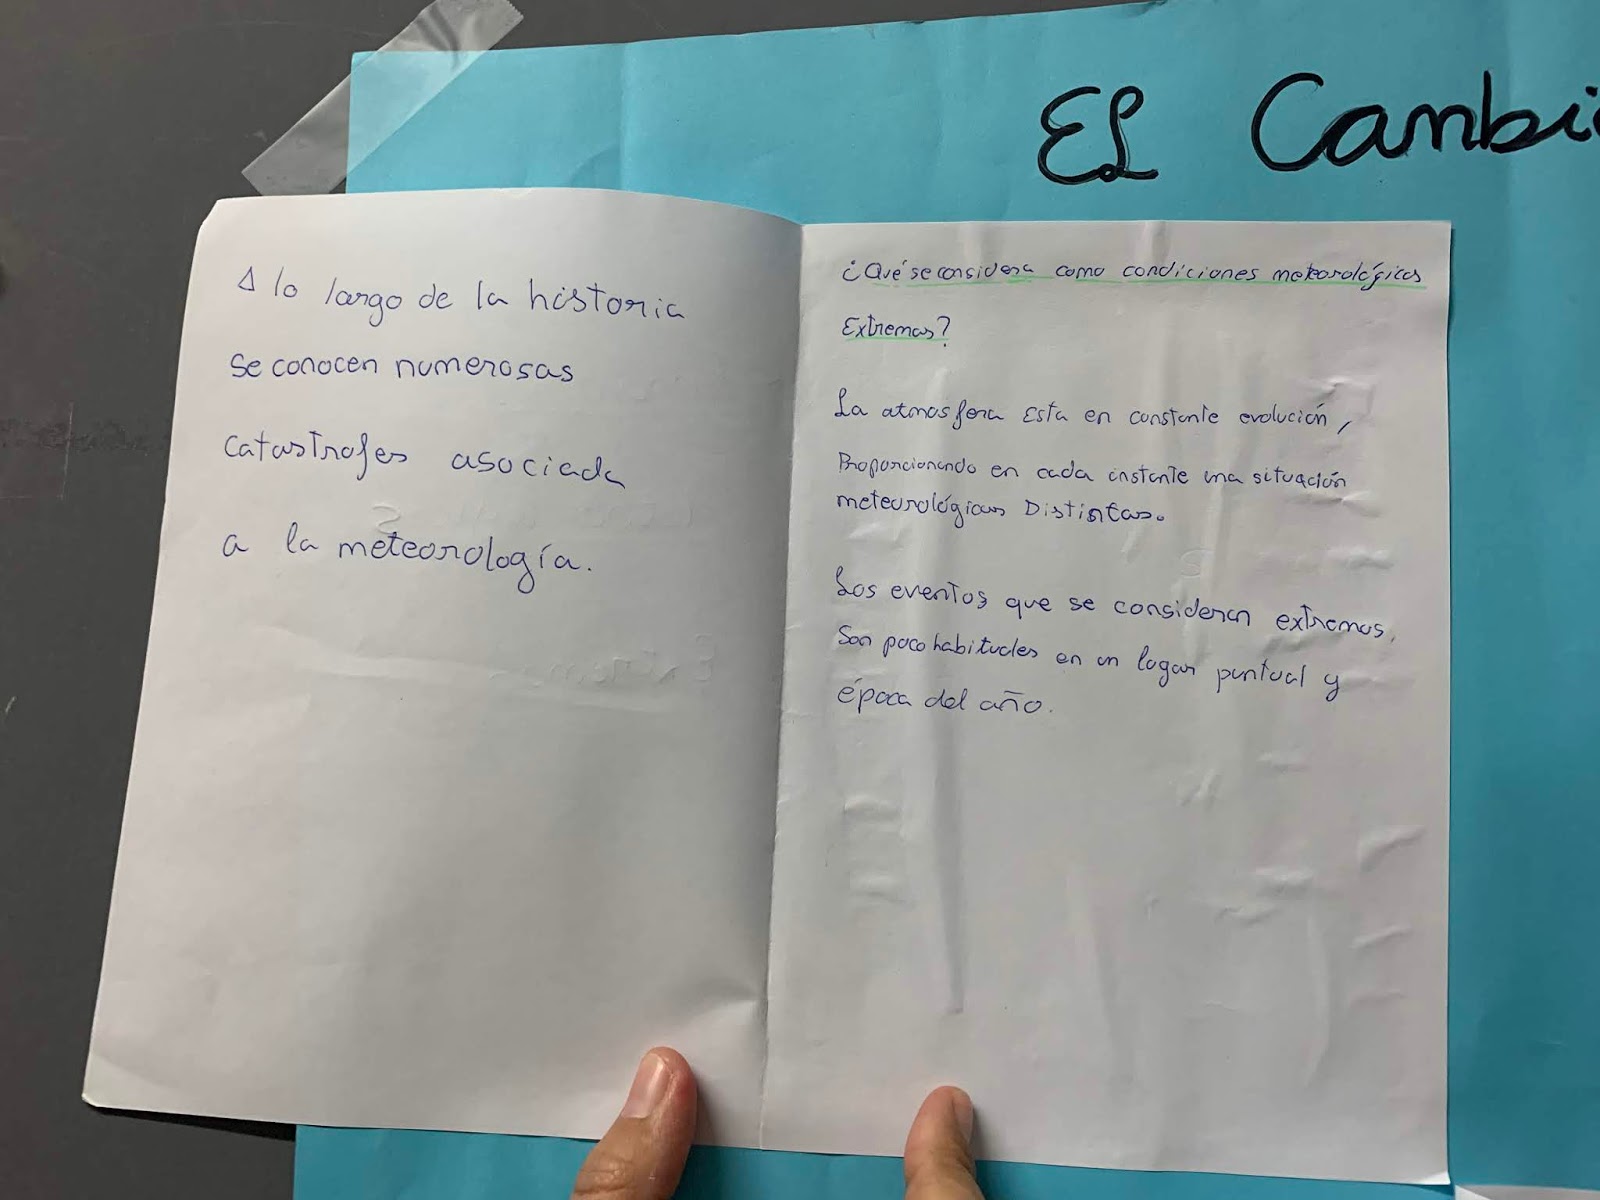 EL Cambi
A lo largo de la historia
se conocen numerosas
catastrofes asociada
a la meteorología.
¿Qué se considera como condiciones meteorológicas
Extremas?
La atmosfera Esta en constante evolución,
Proporcionando en cada instante una situación
meteorológicas Distintas.
Los eventos que se consideran extremos,
Son poco habituales en un lugar puntual y
época del año.